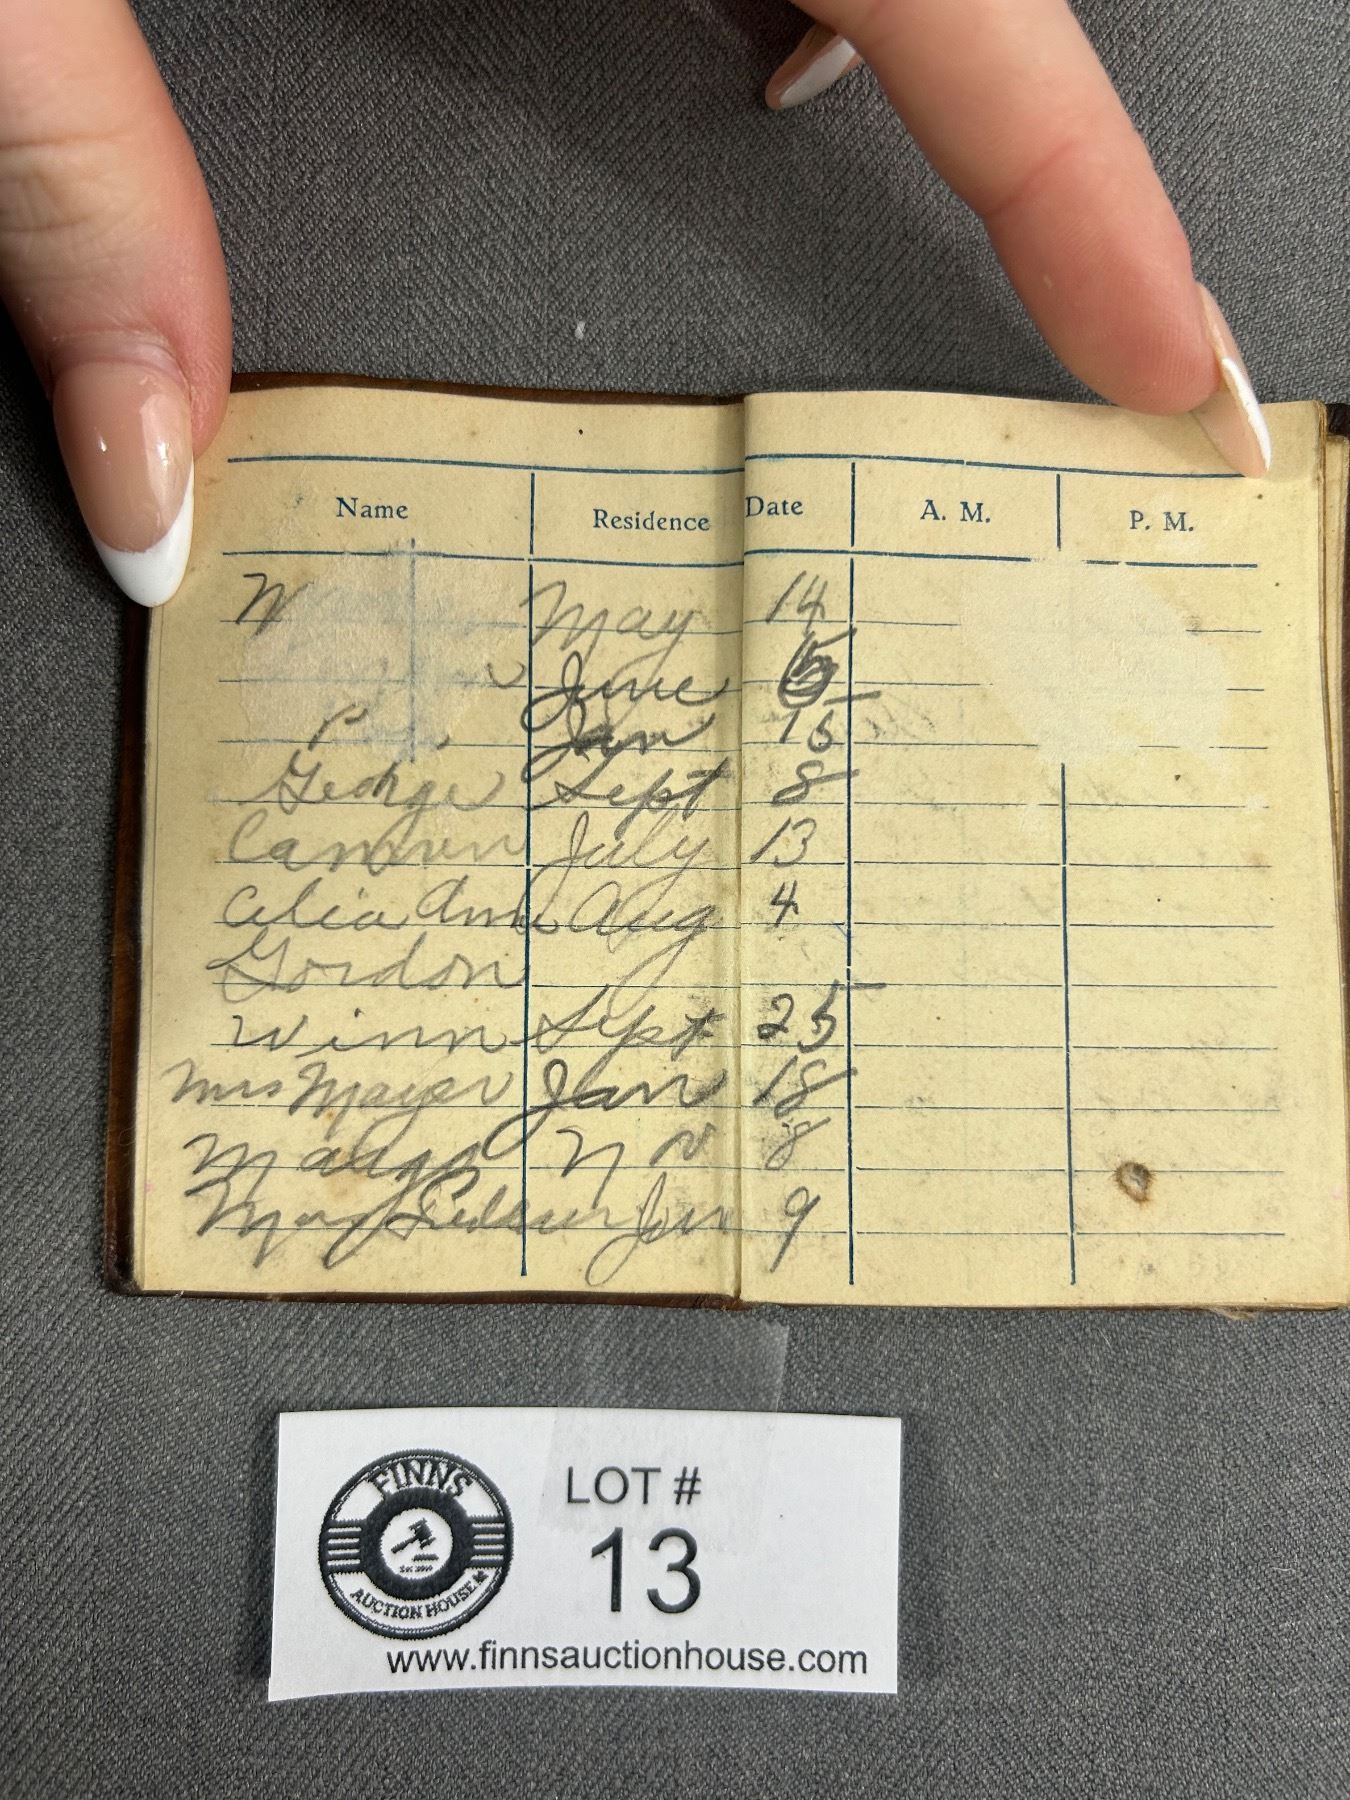 Name Residence Date A. M. P. M.
May 14
June
Jan 15
George Sept 8
Cameron July 13
Celia Ann Aug 4
Gordon
Winn Sept 25
Mrs Mayer Jan 18
Nov 8
Jan 9
FINNS
AUCTION HOUSE
LOT #
13
www.finnsauctionhouse.com